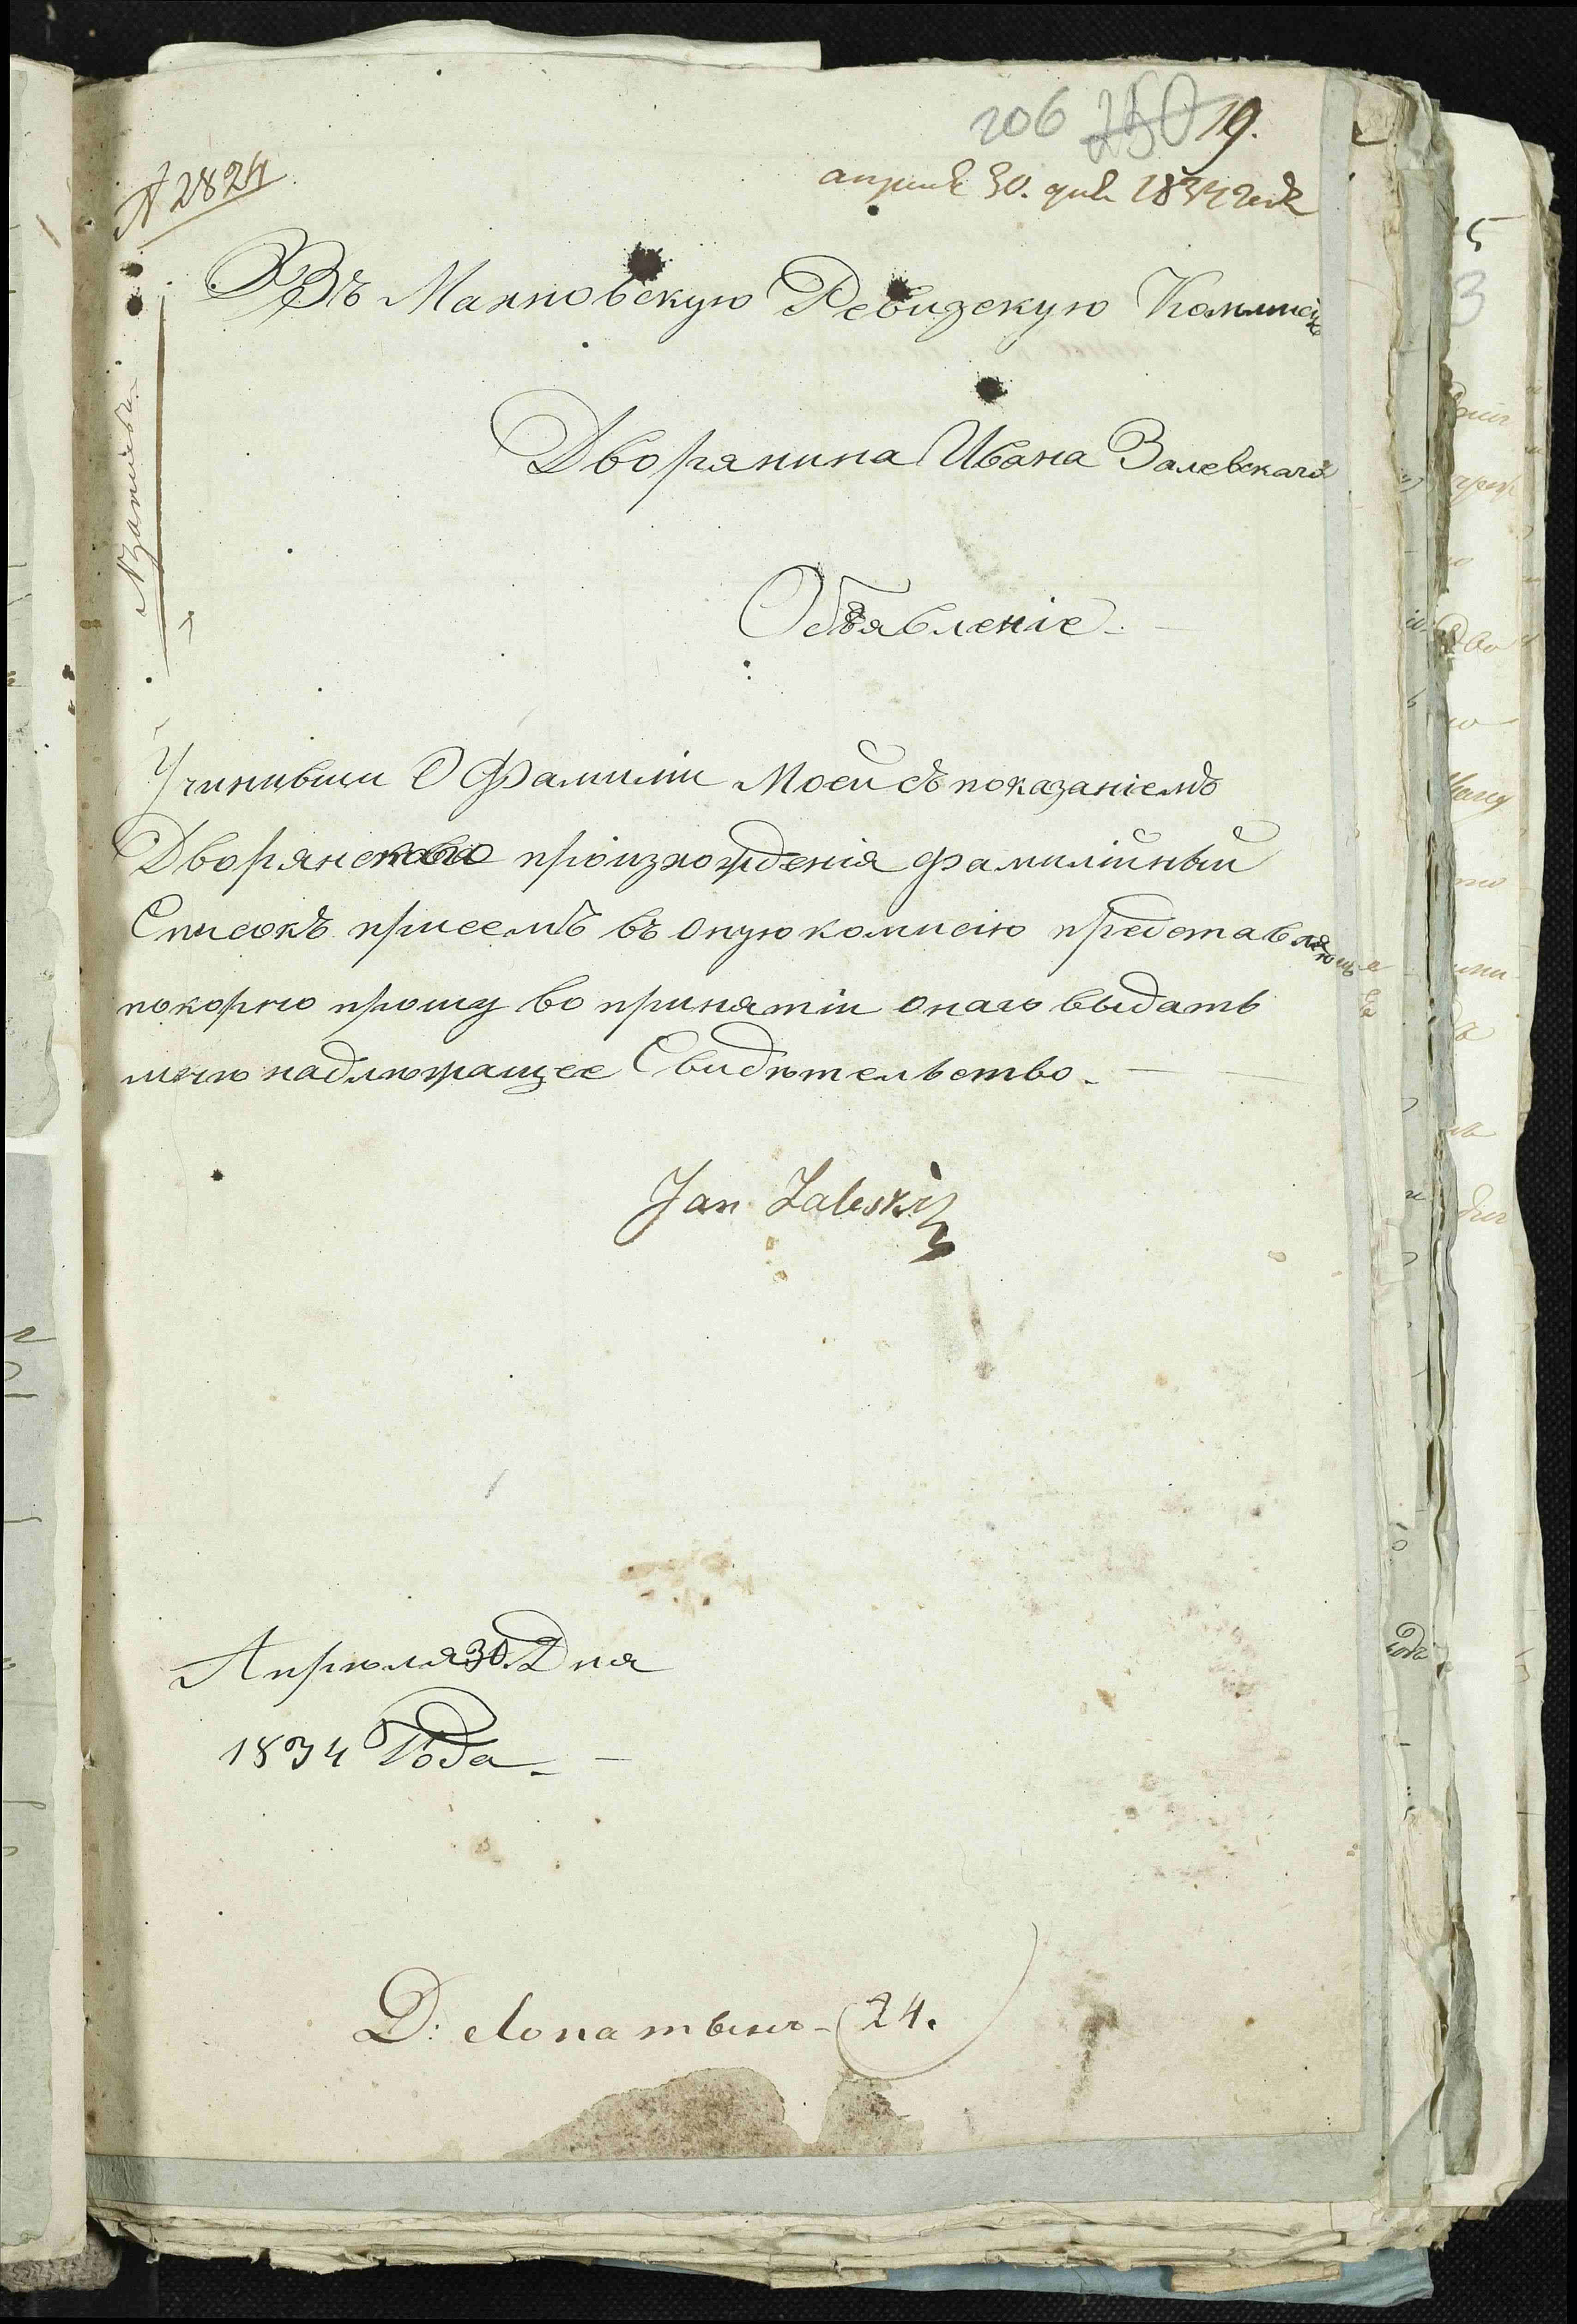 206 250 19.
№ 2824
апреля 30. дня 1834 года
Въ Махновскую Ревизскую Коммисію
Дворянина Ивана Залевскаго
Объявленіе.
Учинивши О Фамиліи Моей съ показаніемъ
Дворянскаго произхожденія фамилійный
Списокъ присемъ въ оную комисію представляя
покорно прошу во принятіи онаго выдать
мнѣ надлѣжащее Свидѣтельство.
Jan Zaleski
Апрѣля 30. Дня
1834 Года
Д: Лопатынъ - 24.